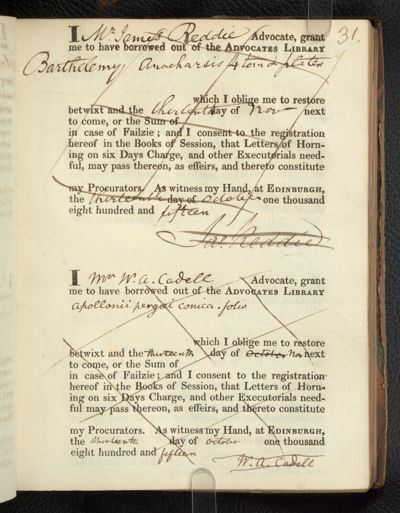 31.
I Mr James Reddie Advocate, grant
me to have borrowed out of the ADVOCATES LIBRARY
Barthelemy Anacharsis 4 tom & plates
which I oblige me to restore
betwixt and the thirteenth day of Nov next
to come, or the Sum of
in case of Failzie; and I consent to the registration
hereof in the Books of Session, that Letters of Horn-
ing on six Days Charge, and other Executorials need-
ful, may pass thereon, as effeirs, and thereto constitute
my Procurators. As witness my Hand, at EDINBURGH,
the thirteenth day of October one thousand
eight hundred and fifteen
Jas. Reddie
I Mr W. A. Cadell Advocate, grant
me to have borrowed out of the ADVOCATES LIBRARY
apollonii pergaei conica. folio
which I oblige me to restore
betwixt and the thirteenth day of October Nov next
to come, or the Sum of
in case of Failzie; and I consent to the registration
hereof in the Books of Session, that Letters of Horn-
ing on six Days Charge, and other Executorials need-
ful may pass thereon, as effeirs, and thereto constitute
my Procurators. As witness my Hand, at EDINBURGH,
the thirteenth day of October one thousand
eight hundred and fifteen
W. A. Cadell